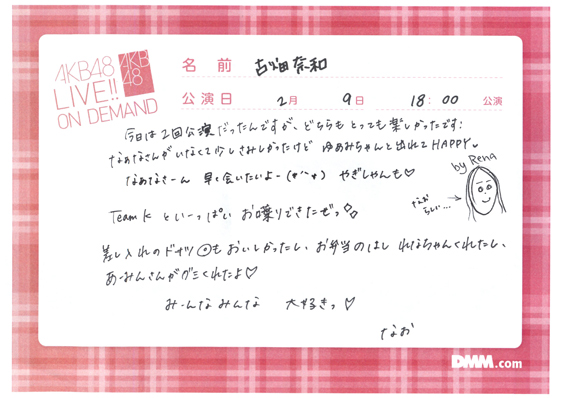 AKB48
LIVE!!
ON DEMAND
AKB
48
名前 古畑奈和
公演日 2月 9日 18:00 公演
今日は2回公演だったんですが、どちらもとっても楽しかったです!
なぁなさんがいなくて少しさみしかったけど ゆあみちゃんと出れてHAPPY
なぁなさーん 早く会いたいよー(*´^`*) やぎしゃんも♡
by Rena
なお
らしい...
Team K といーっぱい お喋りできたぜっ
差し入れのドーナツもおいしかったし、お弁当のはし れなちゃんくれたし、
あーみんさんがグミくれたよ♡
みーんなみんな 大好きっ♡
なお
DMM.com